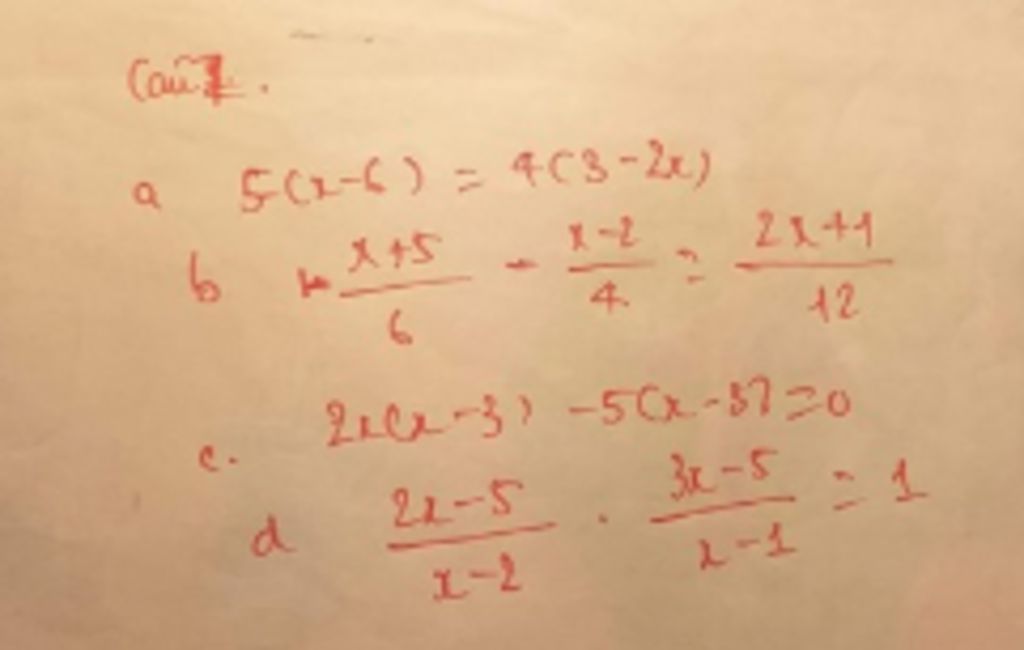 Câu 1.
a 5(x-6) = 4(3-2x)
b \frac{x+5}{6} - \frac{x-2}{4} = \frac{2x+1}{12}
c. 2x(x-3) -5(x-3)=0
d \frac{2x-5}{x-2} . \frac{3x-5}{x-1} = 1